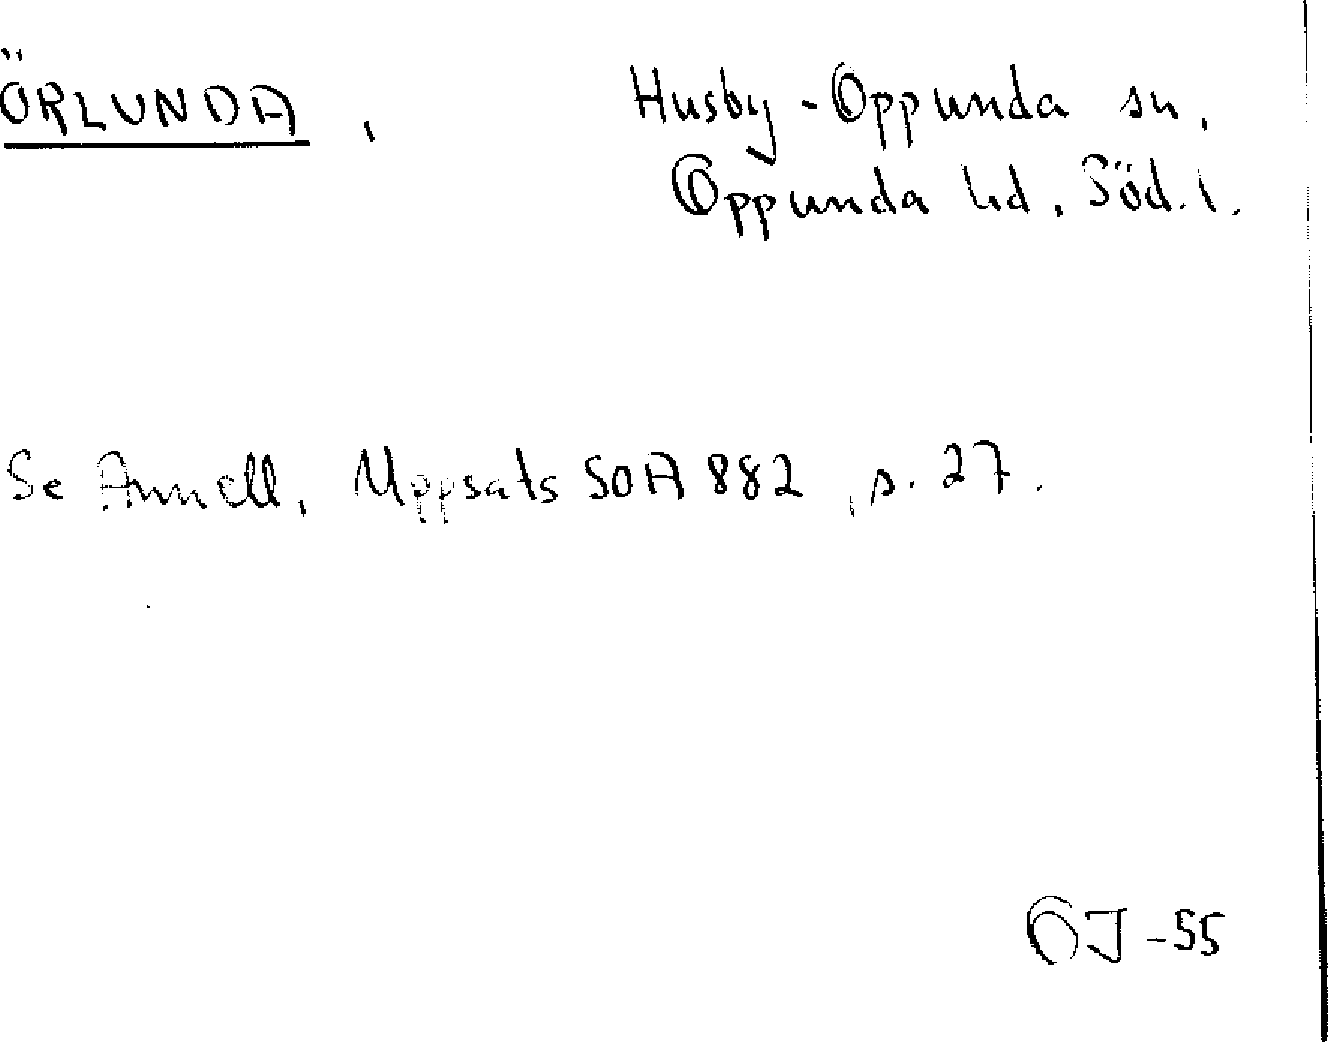 ÖRLUNDA, Husby-Oppunda sn,
Oppunda hd, Söd.l.
Se Annell, Uppsats SOA 882, s. 27.
OJ-55